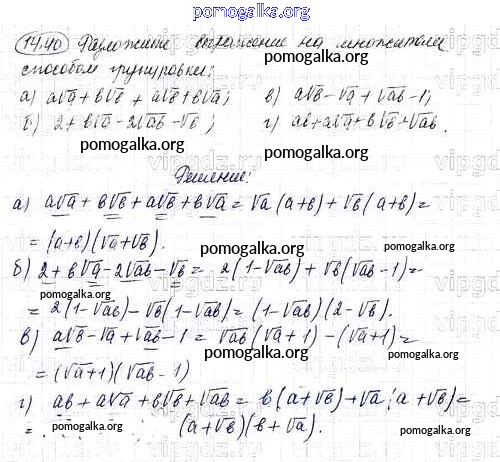 pomogalka.org
14.40 Разложите выражение на множители
способом группировки:
а) a√a + b√b + a√b + b√a; в) a√b - √a + √ab - 1;
б) 2 + b√a - 2√ab - √b; г) ab + a√a + b√b + √ab.
pomogalka.org pomogalka.org
Решение:
а) a√a + b√b + a√b + b√a = √a(a+b) + √b(a+b) =
= (a+b)(√a+√b). pomogalka.org
б) 2 + b√a - 2√ab - √b = 2(1-√ab) + √b(√ab-1) =
pomogalka.org
= 2(1-√ab) - √b(1-√ab) = (1-√ab)(2-√b).
в) a√b - √a + √ab - 1 = √ab(√a+1) - (√a+1) =
pomogalka.org
= (√a+1)(√ab-1)
г) ab + a√a + b√b + √ab = b(a+√b) + √a(a+√b) =
= (a+√b)(b+√a).
pomogalka.org pomogalka.org
vipgdz.ru